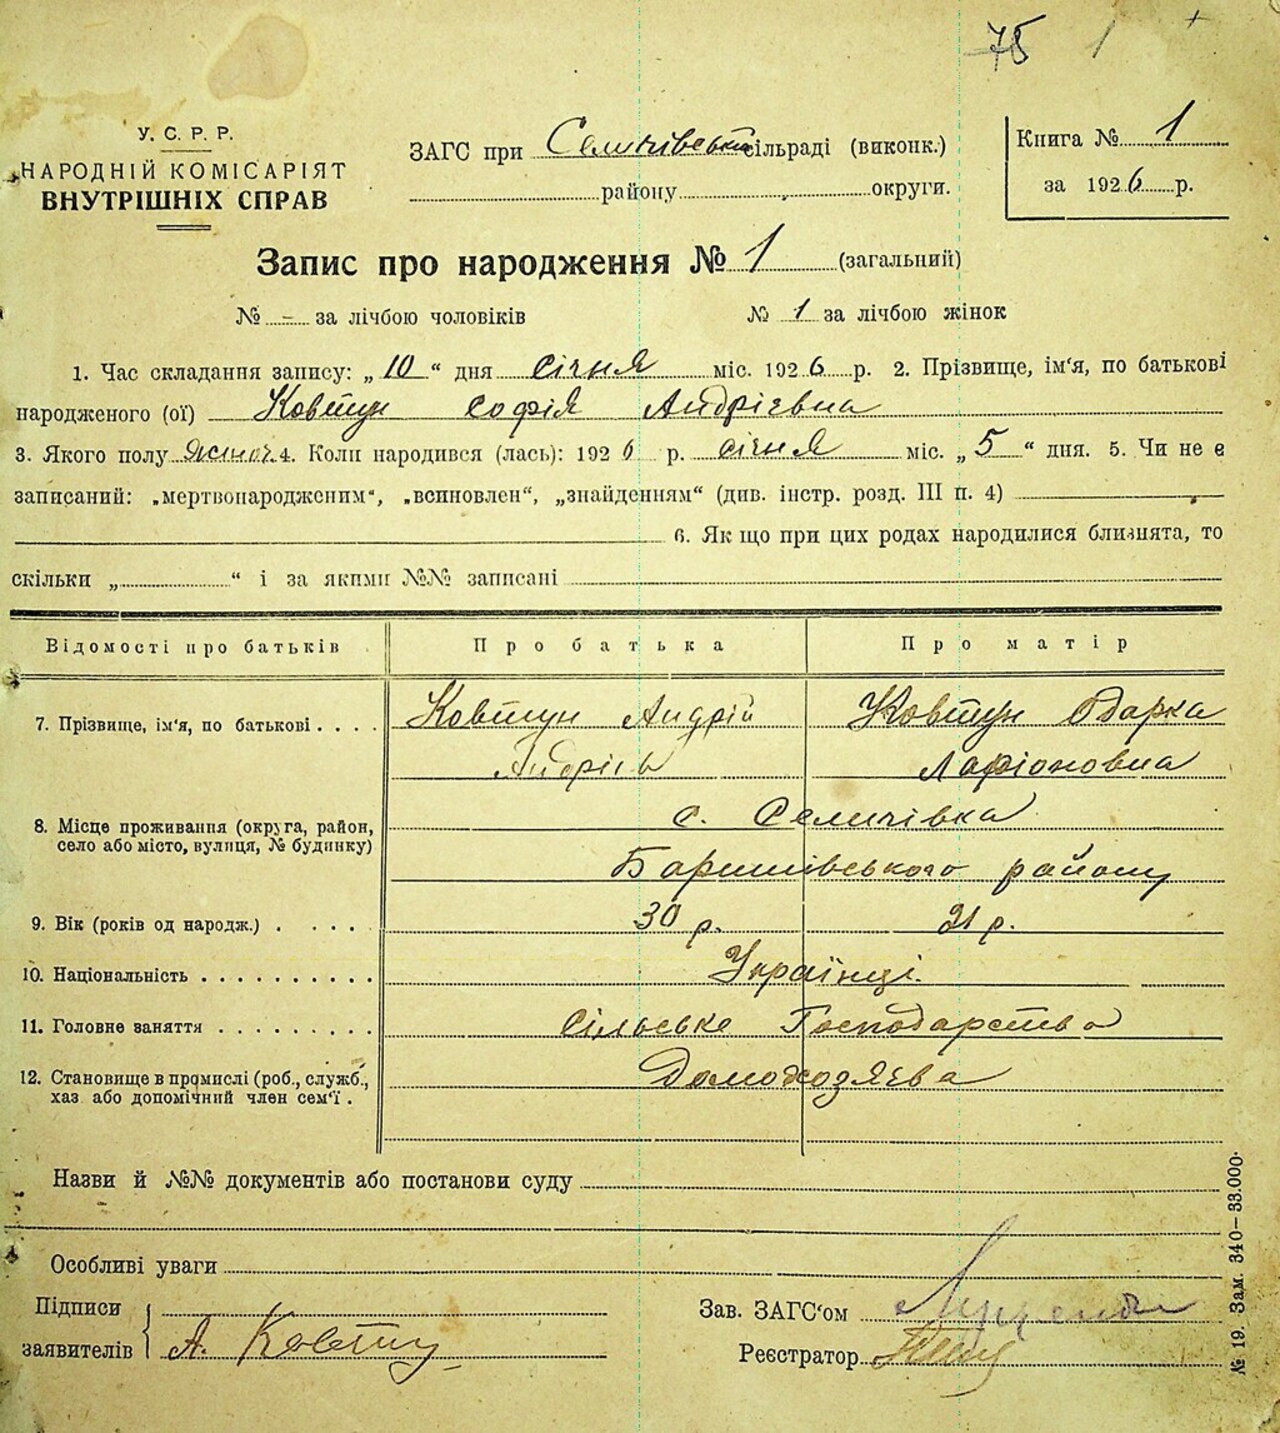 75 1
У. С. Р. Р.
НАРОДНІЙ КОМІСАРІЯТ
ВНУТРІШНІХ СПРАВ
ЗАГС при Селичівській сільраді (виконк.)
району округи.
Книга № 1
за 1926 р.
Запис про народження № 1 (загальний)
№ - за лічбою чоловіків № 1 за лічбою жінок
1. Час складання запису: „10“ дня січня міс. 1926 р. 2. Прізвище, ім‘я, по батькові
народженого (ої) Ковтун Софія Андрієвна
3. Якого полу жіноч. 4. Коли народився (лась): 1926 р. січня міс. „5“ дня. 5. Чи не е
записаний: „мертвонародженим“, „всиновлен“, „знайденням“ (див. інстр. розд. III п. 4)
6. Як що при цих родах народилися близнята, то
скільки „ “ і за якими №№ записані
Відомості про батьків Про батька Про матір
7. Прізвище, ім‘я, по батькові . . . . Ковтун Андрій Ковтун Одарка
Андрієв Ларіоновна
8. Місце проживання (округа, район, с. Селичівка
село або місто, вулиця, № будинку)
Баришівського району
9. Вік (років од народж.) . . . . 30 р. 21 р.
10. Національність . . . . . . . . . . Українці.
11. Головне заняття . . . . . . . . . Сільське Господарство
12. Становище в промислі (роб., служб., Домохозяєва
хаз або допомічний член сем‘ї .
Назви й №№ документів або постанови суду
Особливі уваги
Підписи
заявителів А. Ковтун
Зав. ЗАГС‘ом
Реєстратор
№ 19. Зам. 340–33.000.